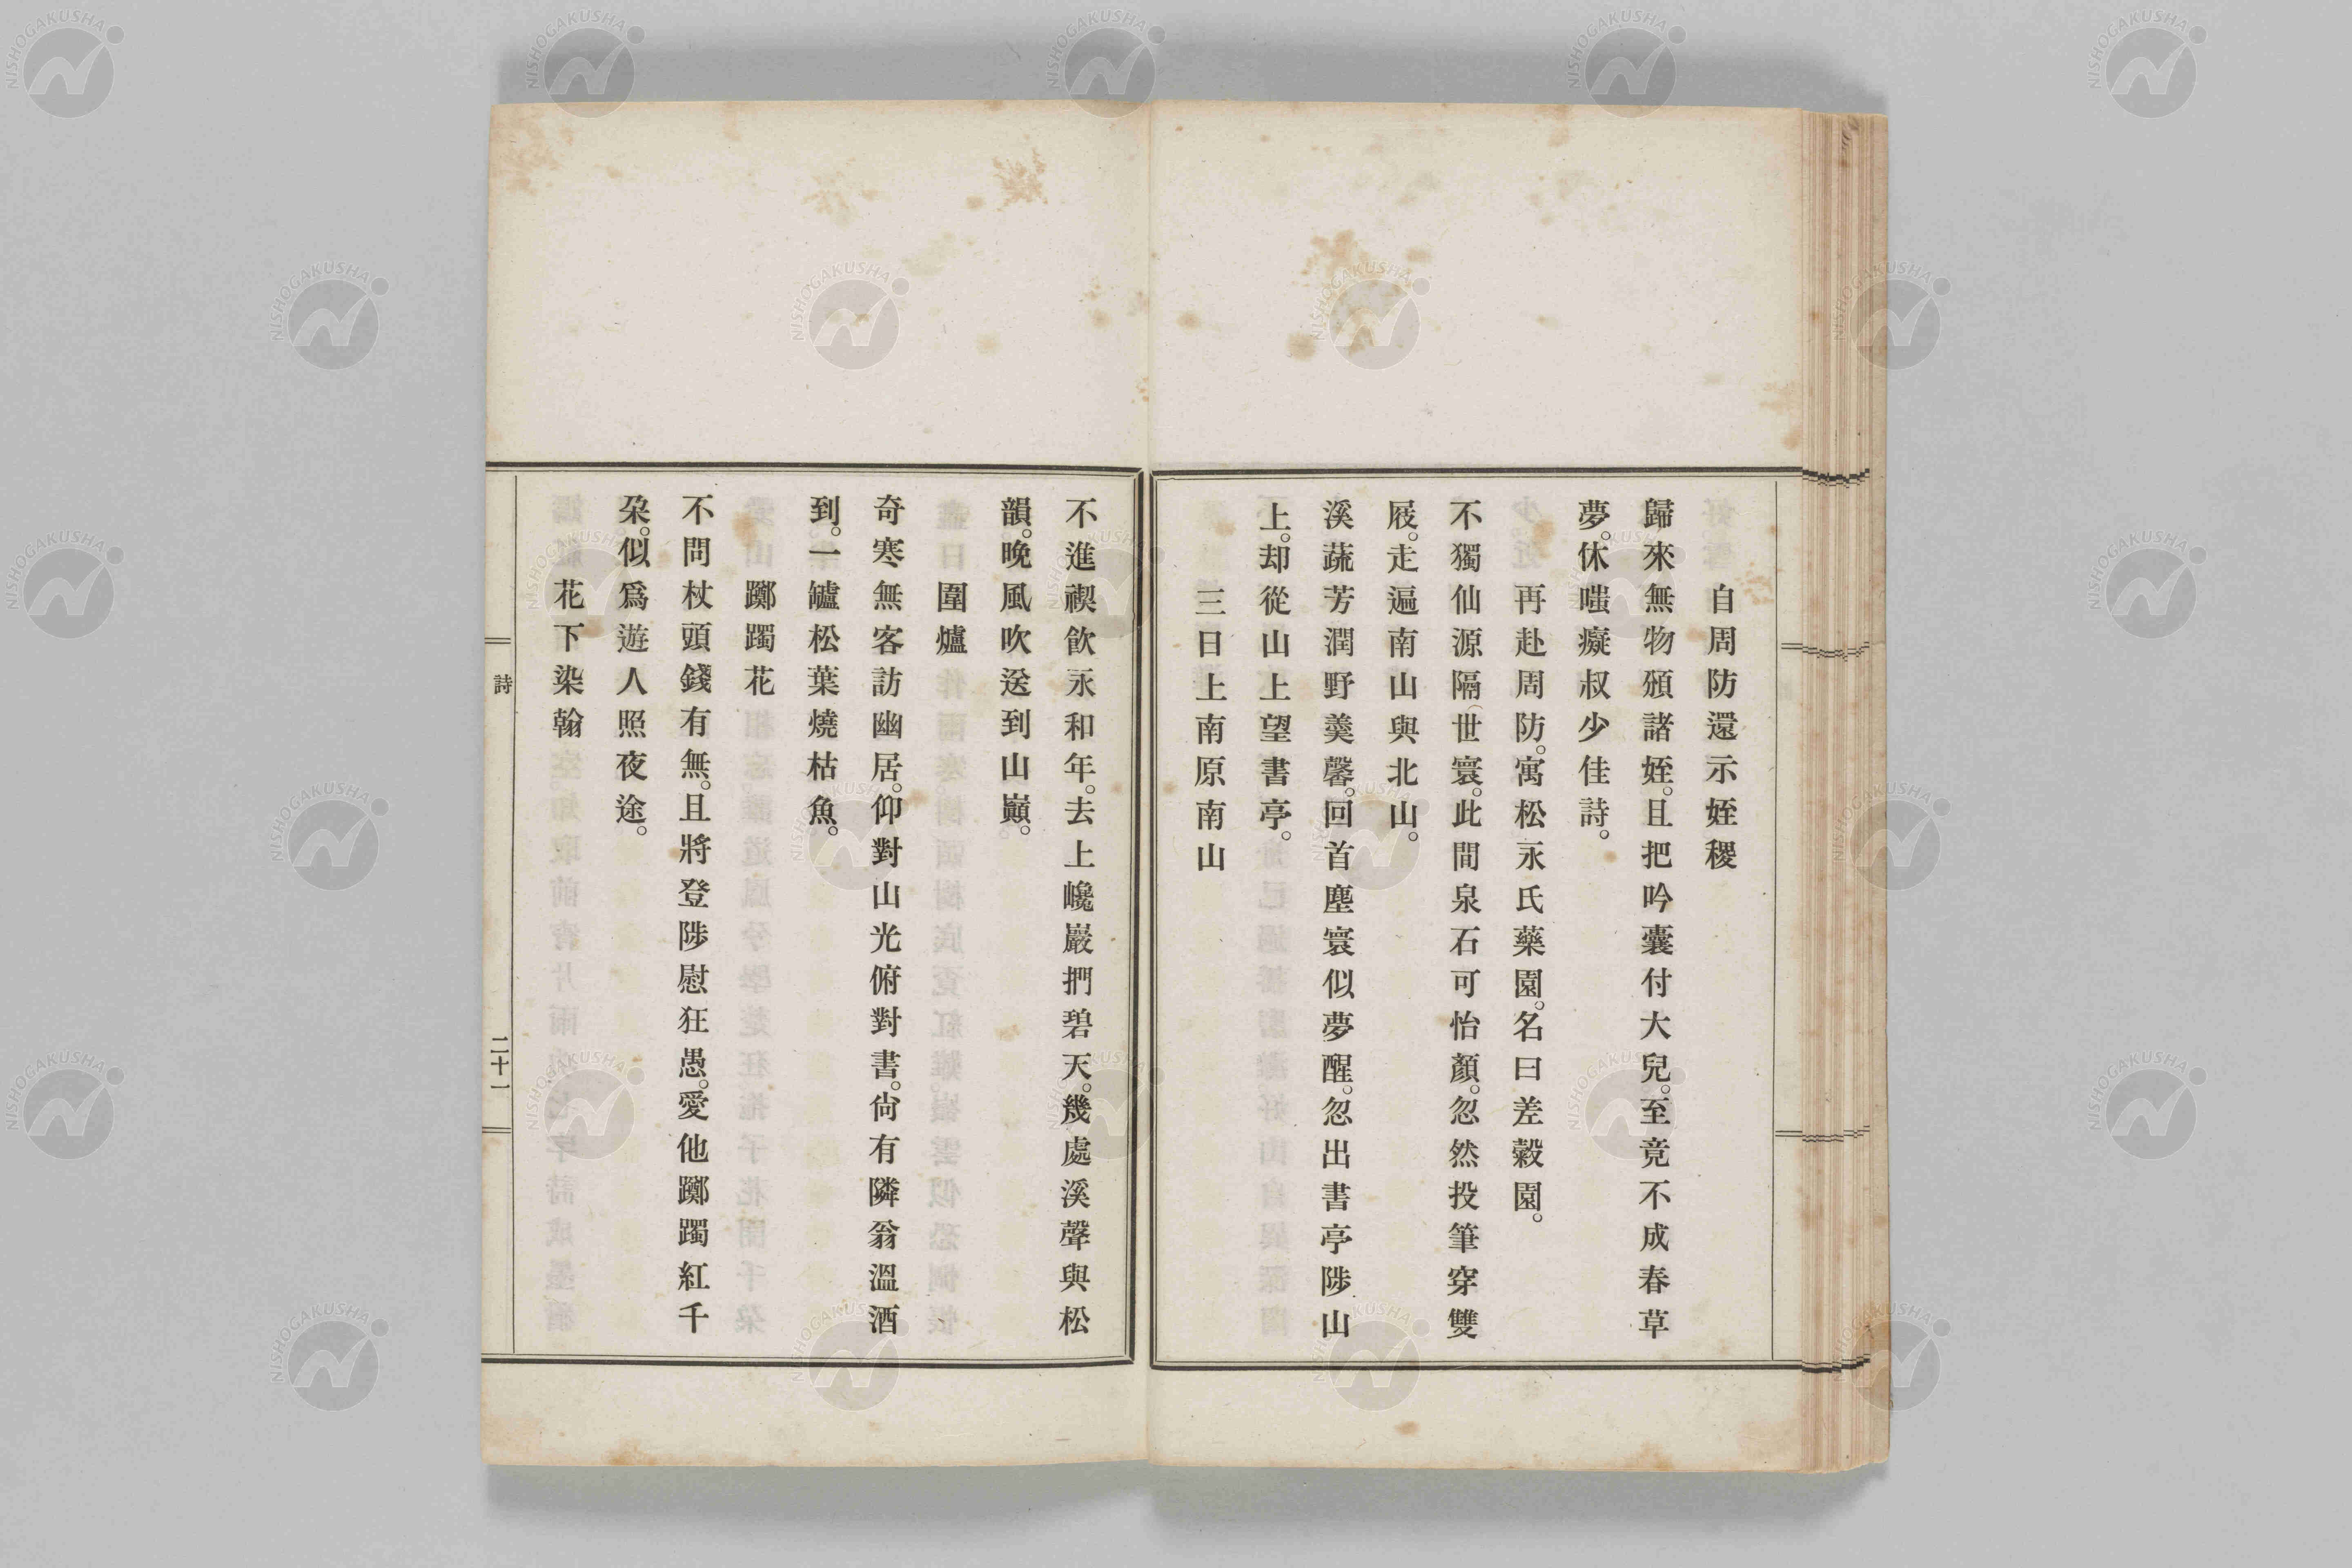 自周防還示姪稷
歸來無物頒諸姪。且把吟囊付大兒。至竟不成春草
夢。休嗤癡叔少佳詩。
再赴周防。寓松永氏藥園。名曰差穀園。
不獨仙源隔世寰。此間泉石可怡顏。忽然投筆穿雙
屐。走遍南山與北山。
溪蔬芳潤野羹馨。回首塵寰似夢醒。忽出書亭陟山
上。却從山上望書亭。
三日上南原南山
不進禊飲永和年。去上巉巖捫碧天。幾處溪聲與松
韻。晚風吹送到山巓。
圍爐
奇寒無客訪幽居。仰對山光俯對書。尙有隣翁溫酒
到。一罏松葉燒枯魚。
躑躅花
不問杖頭錢有無。且將登陟慰狂愚。愛他躑躅紅千
朶。似爲遊人照夜途。
花下染翰
詩
二十一
NISHOGAKUSHA